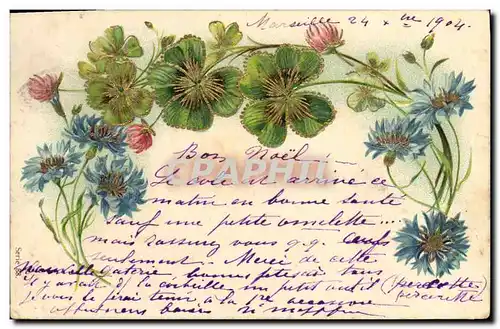 Marseille 24 xbre 1904.
Bon Noël
La oie est arrivé ce
matin en bonne santé
Sauf une petite omelette....
mais rassurez vous q.q. œufs
seulement. Merci de cette
gaterie, bonnes fêtes à tous
il y avait dans la corbeille un petit outil (
je vous le ferai tenir à la 1re occasion
affectueux baisers
CPHPHI
Serie